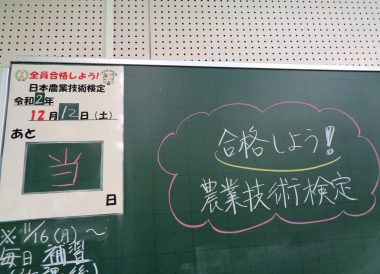 全員合格しよう!
日本農業技術検定
令和2年
12月12日(土)
あと
当
日
※11/16(月)~
毎日補習
合格しよう!
農業技術検定